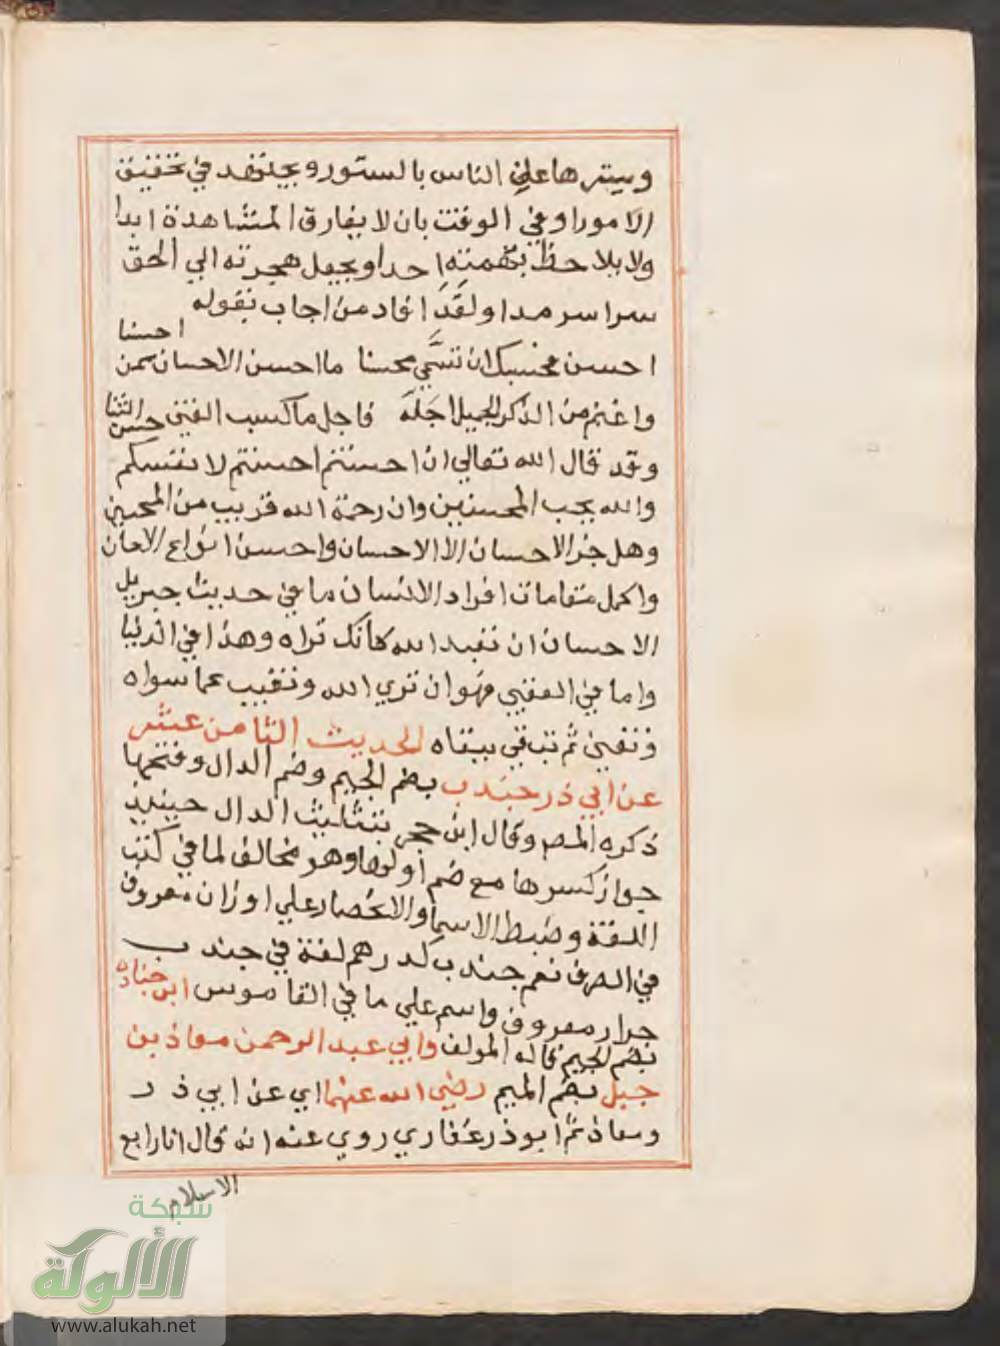 ويسترها علي الناس بالستور ويجتهد في تحقيق
الامور او في الوقت بان لا يفارق المشاهدة ابدا
ولا يلاحظ بهمته احدا ويجعل هجرته الي الحق
سرا سرمدا ولقد افاد من اجاب بقوله
احسن فحسبك ان تسمي محسنا ما احسن الاحسان ممن احسنا
واغنم من الذكر الجميل اجله فاجل ما كسب الفتي حسن الثنا
وقد قال الله تعالي ان احسنتم احسنتم لانفسكم
والله يحب المحسنين وان رحمة الله قريب من المحسنين
وهل جزا الاحسان الا الاحسان واحسن انواع الاحسان
واكمل مقامات افراد الانسان ما في حديث جبريل
الاحسان ان تعبد الله كانك تراه وهذا في الدنيا
واما في العقبي فهو ان تري الله وتغيب عما سواه
وتفني ثم تبقي ببقاه الحديث الثامن عشر
عن ابي ذر جندب بضم الجيم وضم الدال وفتحها
ذكره المص وقال ابن حجر بتثليث الدال حينئذ
جواز كسرها مع ضم اولها وهو مخالف لما في كتب
اللغة وضبط الاسما والانحصار علي اوزان معروف
في الصرف نعم جندب كدرهم لغة في جندب
جراد معروف واسم علي ما في القاموس ابن جناده
بضم الجيم قاله المولف وابي عبد الرحمن معاذ بن
جبل بضم الميم رضي الله عنهما اي عن ابي ذر
ومعاذ ثم ابو ذر غفاري روي عنه انه قال انا رابع
الاسلام
شبكة
الألوكة
www.alukah.net